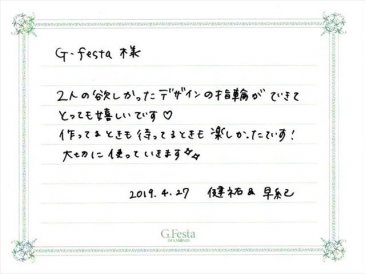 G-festa 様
2人の欲しかったデザインの指輪ができて
とっても嬉しいです♡
作ってるときも待ってるときも楽しかったです!
大切に使っていきます☆☆
2019.4.27 健祐 & 早紀
G.Festa